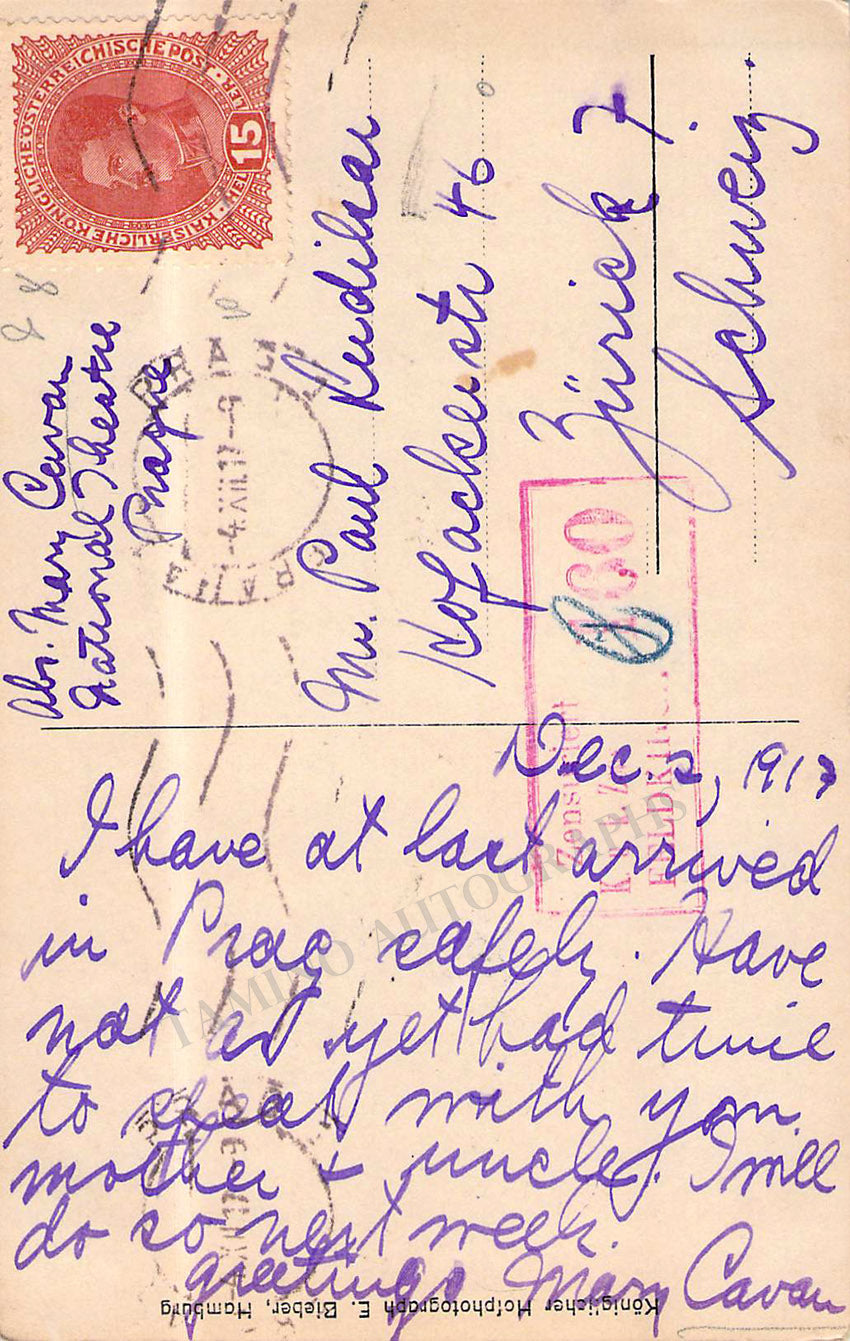 KAISERLICHE KÖNIGLICHE ÖSTERREICHISCHE POST
15
Abs. Mary Cavan
National Theatre
Prague
PRAHA
-4.XII.17-9
Mr. Paul
Hofackerstr 46
Zürich 7.
Schweiz.
Zensuriert
FELDKIRCH
160
Dec. 2, 1917
I have at last arrived
in Prag safely. Have
not as yet had time
to speak with your
mother + uncle. I will
do so next week.
Greetings Mary Cavan
Königlicher Hofphotograph E. Bieber, Hamburg
TAMINO AUTOGRAPHS